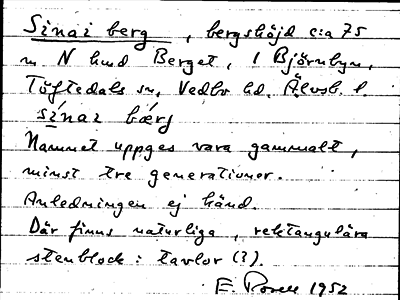 Sinai berg, bergshöjd c:a 75
m N hmd Berget, i Björnbyn,
Töftedals sn, Vedbo hd. Älvsb. l.
sínai bærj
Namnet uppges vara gammalt,
minst tre generationer.
Anledningen ej känd.
Där finns naturliga, rektangulära
stenblock: tavlor (?).
E. 1952